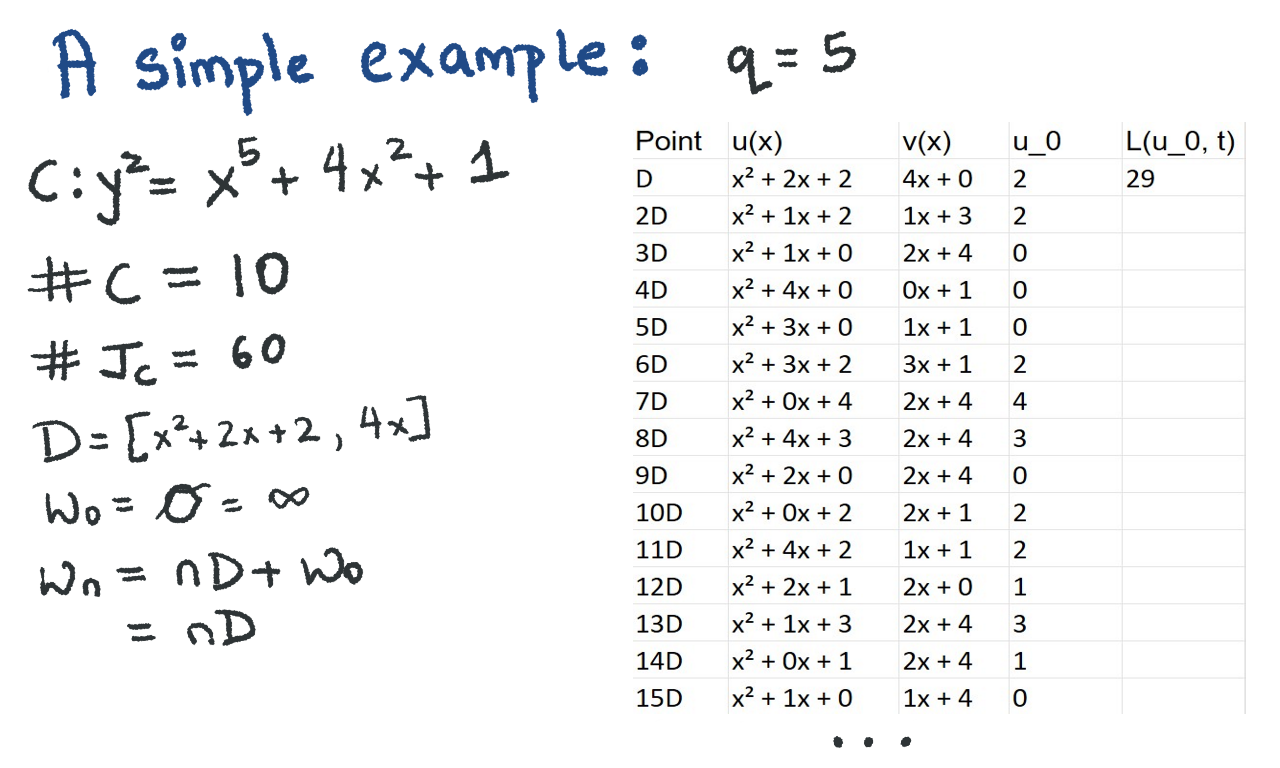 A simple example: q = 5
C: y² = x⁵ + 4x² + 1
# C = 10
# J_C = 60
D = [x² + 2x + 2, 4x]
W₀ = O = ∞
Wₙ = nD + W₀
= nD
Point u(x) v(x) u_0 L(u_0, t)
D x² + 2x + 2 4x + 0 2 29
2D x² + 1x + 2 1x + 3 2
3D x² + 1x + 0 2x + 4 0
4D x² + 4x + 0 0x + 1 0
5D x² + 3x + 0 1x + 1 0
6D x² + 3x + 2 3x + 1 2
7D x² + 0x + 4 2x + 4 4
8D x² + 4x + 3 2x + 4 3
9D x² + 2x + 0 2x + 4 0
10D x² + 0x + 2 2x + 1 2
11D x² + 4x + 2 1x + 1 2
12D x² + 2x + 1 2x + 0 1
13D x² + 1x + 3 2x + 4 3
14D x² + 0x + 1 2x + 4 1
15D x² + 1x + 0 1x + 4 0
...